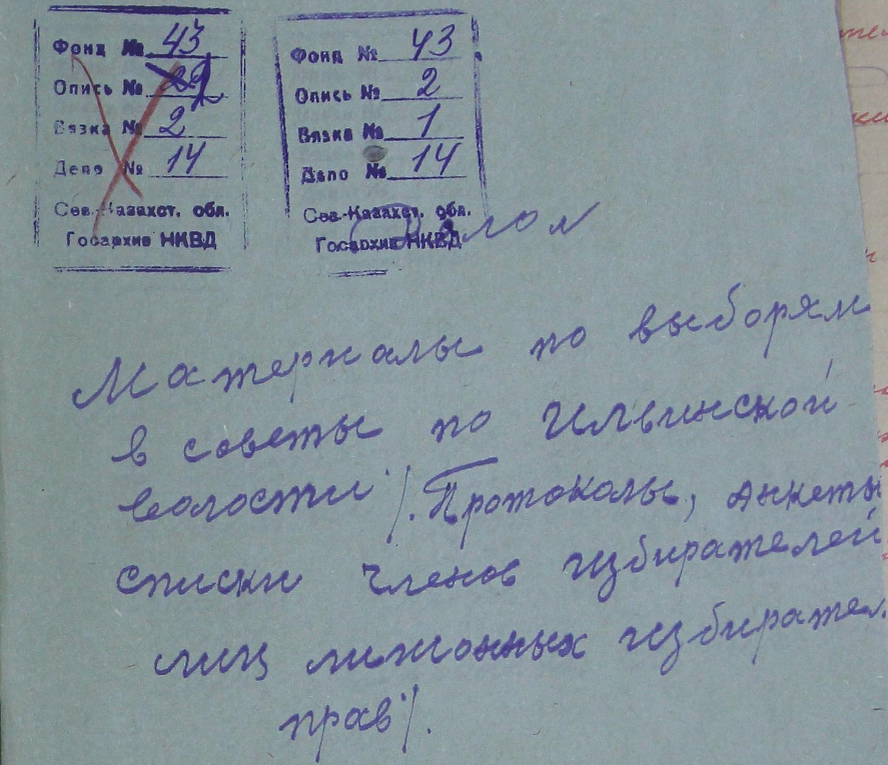 Фонд № 43
Опись № 2
Вязка № 2
Дело № 14
Сев.-Казахст. обл.
Госархив НКВД
Фонд № 43
Опись № 2
Вязка № 1
Дело № 14
Сев.-Казахст. обл.
Госархив НКВД
Материалы по выборам
в советы по Ильинской
волости /. Протоколы, анкеты
списки членов избирателей
лиц лишонных избирател.
прав /.